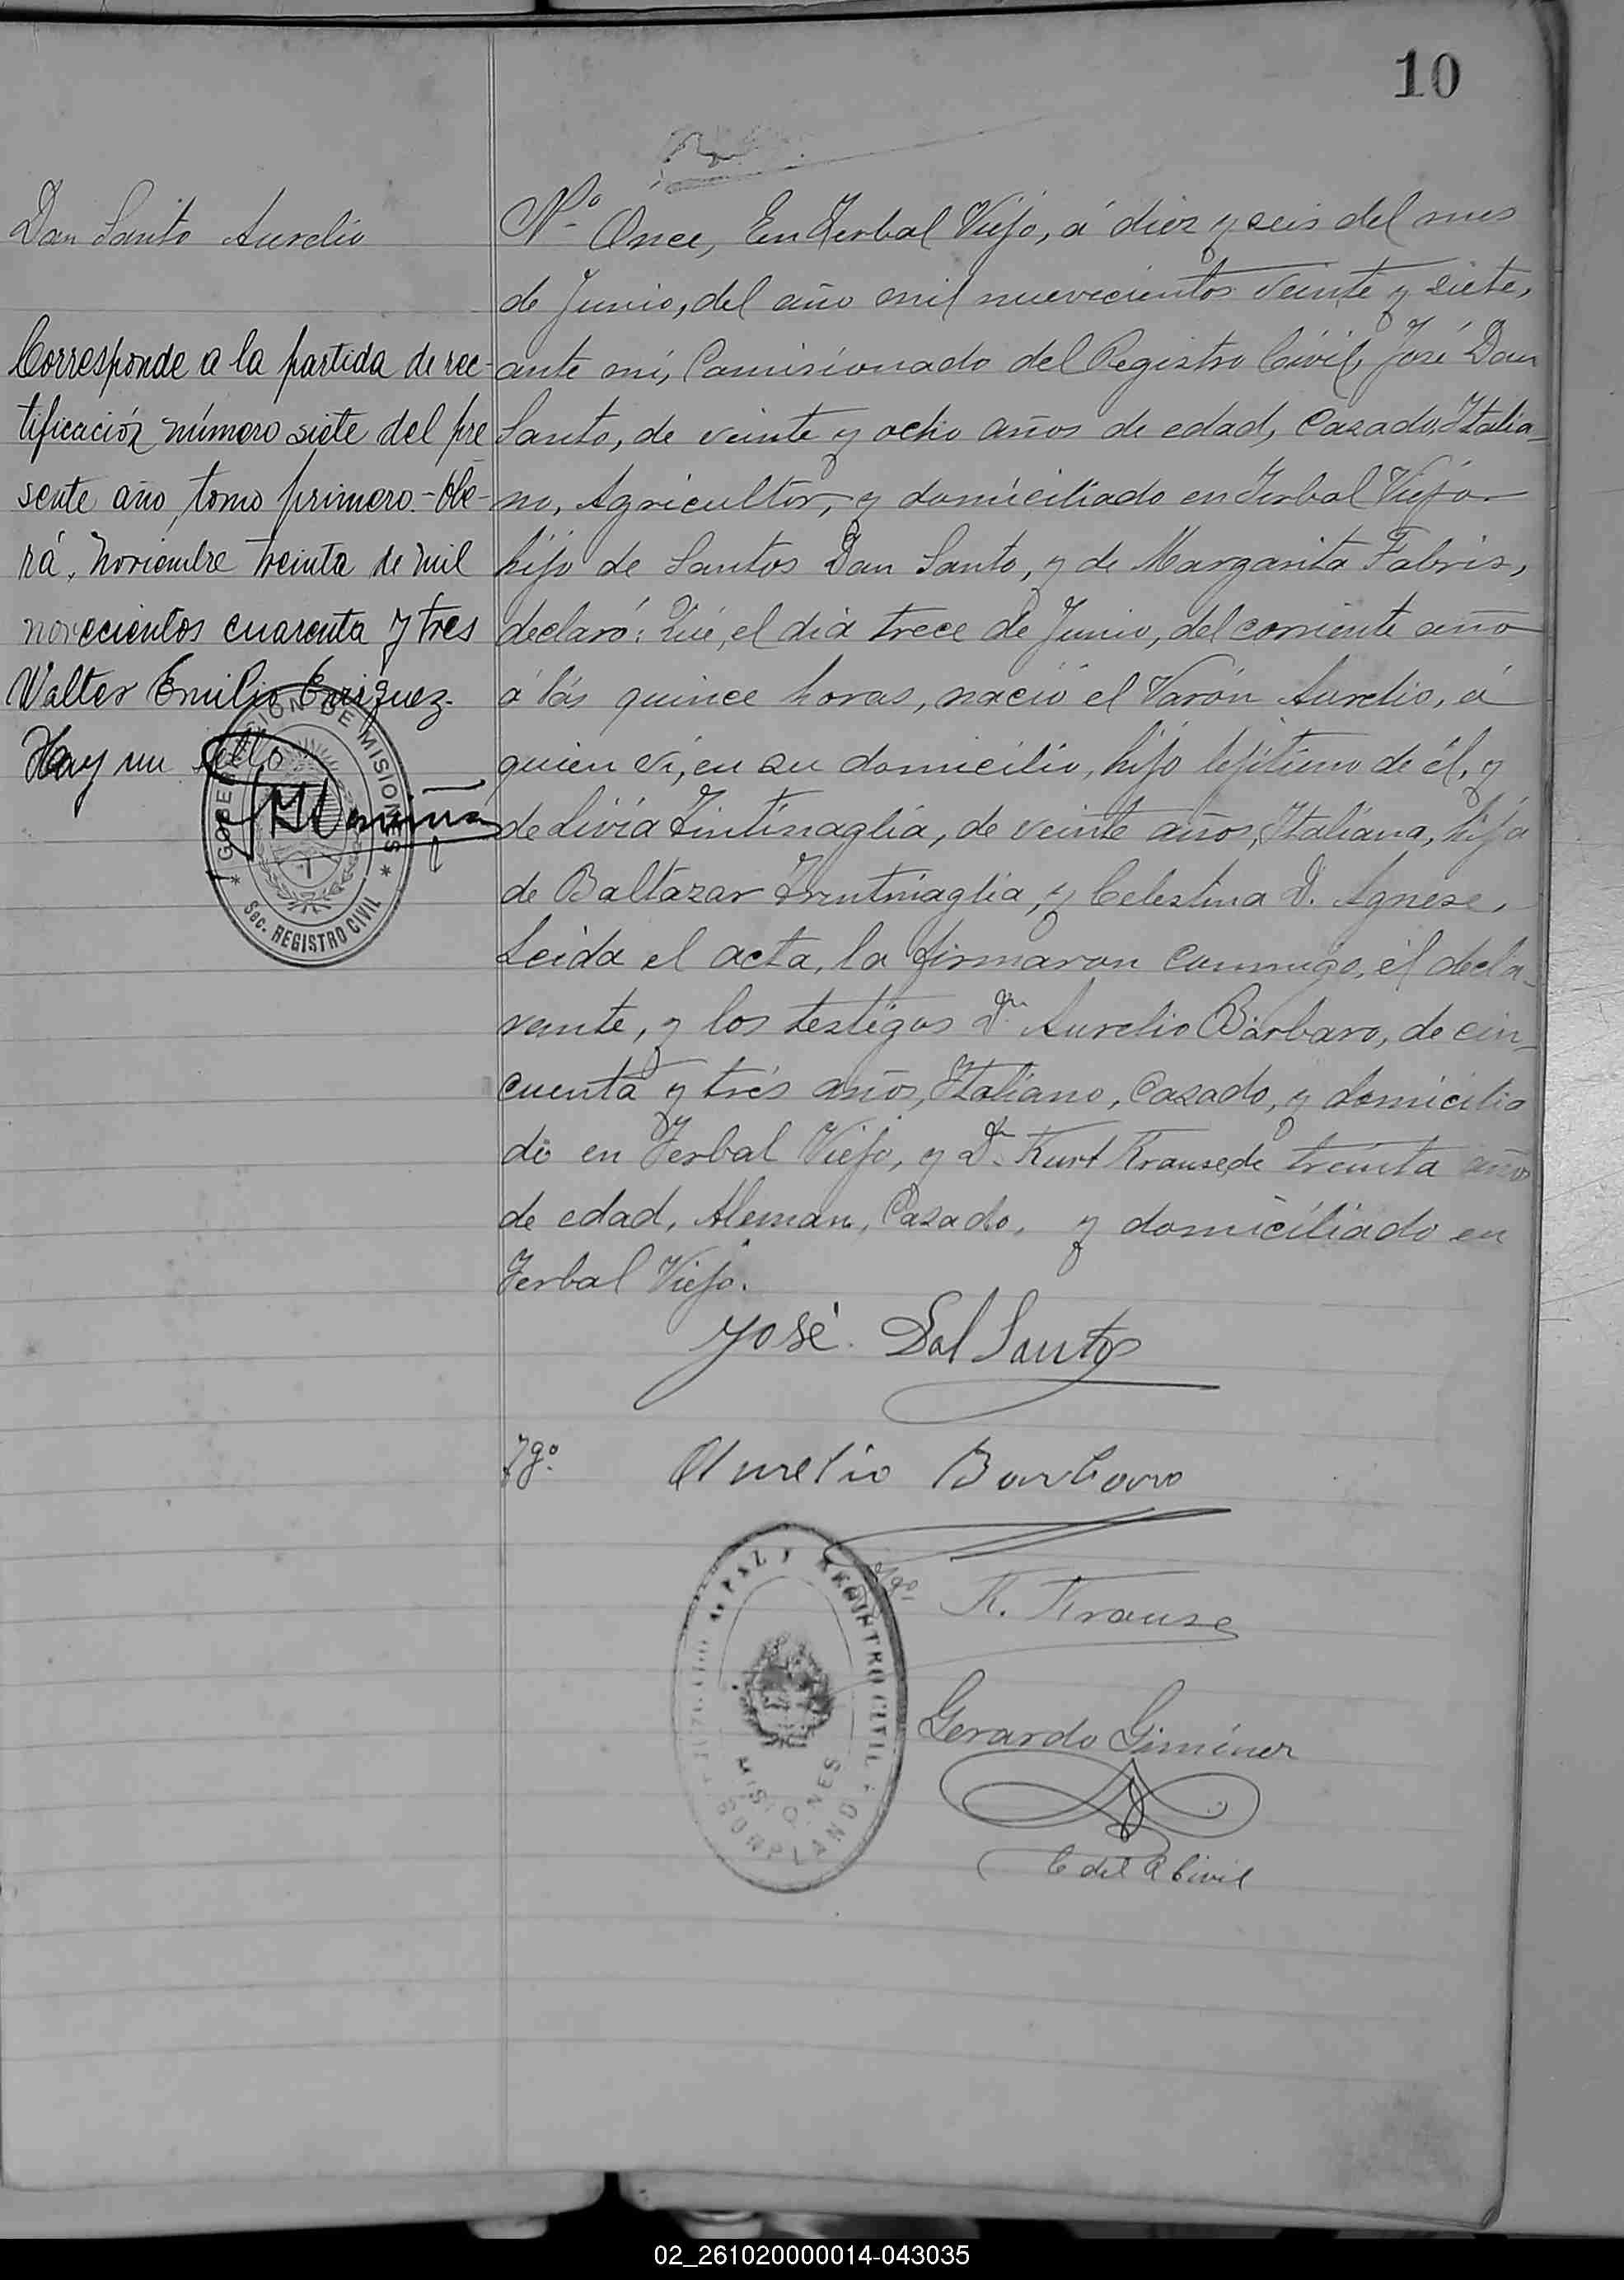 10
Dan Santo Aurelio
Corresponde a la partida de rec-
tificación número siete del pre
sente año, tomo primero.-Obe-
rá, noviembre treinta de mil
novecientos cuarenta y tres
Walter Emilio Enriquez.
Hay un sello
GOBERNACIÓN DE MISIONES
Sec. REGISTRO CIVIL
Nº Once, En Yerbal Viejo, á diez y seis del mes
de Junio, del año mil nuevecientos veinte y siete,
ante mí, Comisionado del Registro Civil, José Dan
Santo, de veinte y ocho años de edad, Casado, Italia-
no, Agricultor, y domiciliado en Yerbal Viejo
hijo de Santos Dan Santo, y de Margarita Fabris,
declaró: Que, el día trece de Junio, del corriente año
á lás quince horas, nació el Varón Aurelio, á
quien ví, en su domicilio, hijo lejitimo de él, y
de Livia Tintinaglia, de veinte años, Italiana, hija
de Baltazar Trentinaglia, y Celestina D. Agnese,
Leida el acta, la firmaron conmigo, él decla-
rante, y los testigos Dn Aurelio Bárbaro, de cin-
cuenta y trés años, Italiano, Casado, y domicilia
do en Yerbal Viejo, y Dn Kurt Krause, de treinta años
de edad, Aleman, Casado, y domiciliado en
Yerbal Viejo.
José Dal Santo
Tgº Aurelio Barbaro
Tgº K. Krause
JUZGADO de PAZ y REGISTRO CIVIL
MISIONES
BONPLAND
Gerardo Giménez
C del R Civil
02_261020000014-043035